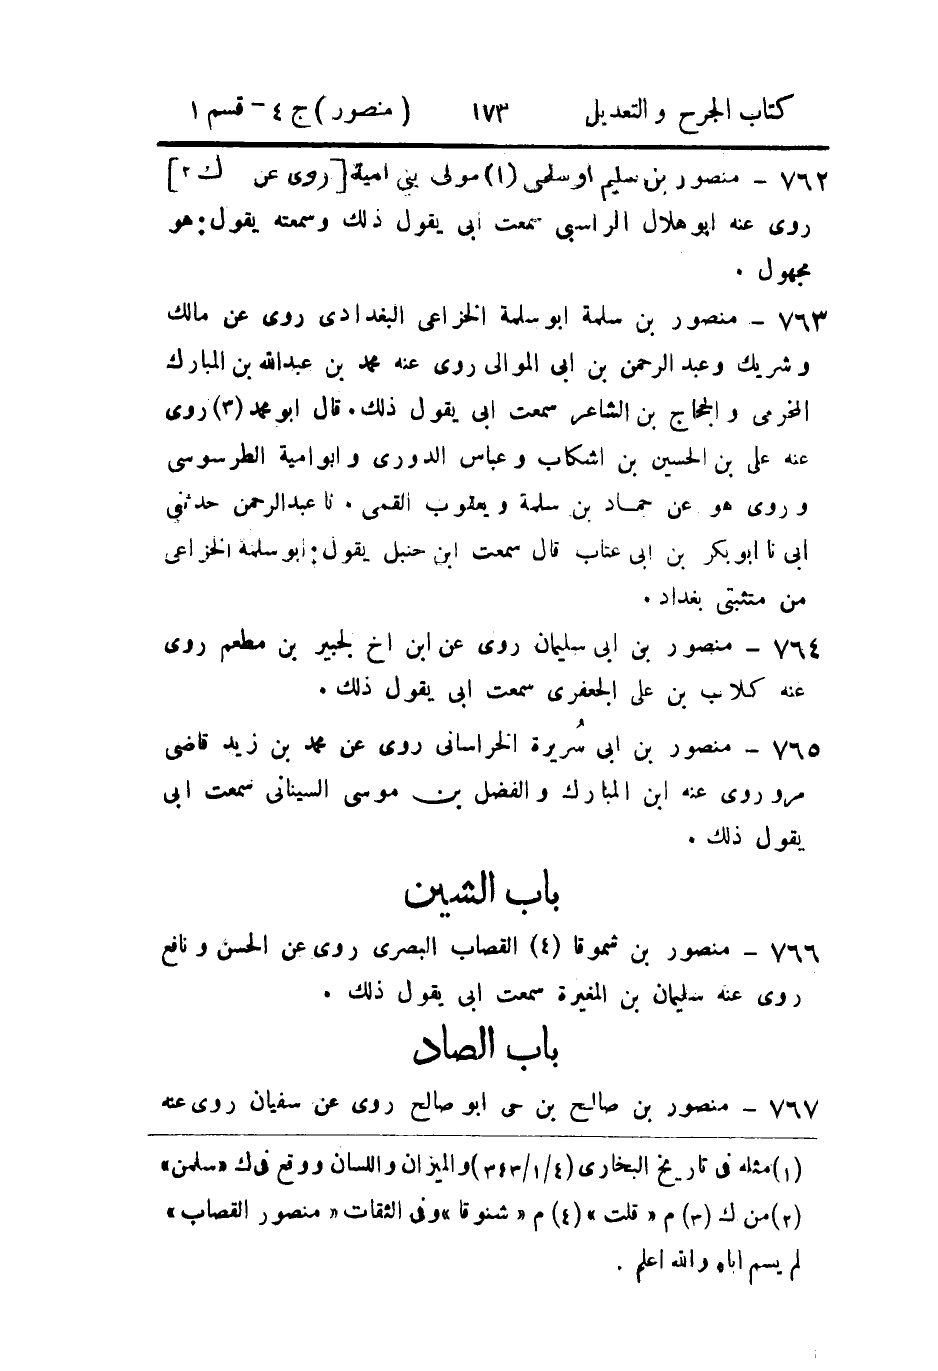 كتاب الجرح والتعديل ١٧٣ (منصور) ج ٤ - قسم ١
٧٦٢ - منصور بن سليم او سلمى (١) مولى بنى امية [روى عن ك ٢]
روى عنه ابو هلال الراسبى سمعت ابى يقول ذلك وسمعته يقول: هو
مجهول .
٧٦٣ - منصور بن سلمة ابو سلمة الخزاعى البغدادى روى عن مالك
وشريك وعبد الرحمن بن ابى الموالى روى عنه محمد بن عبدالله بن المبارك
المخرمى والحجاج بن الشاعر سمعت ابى يقول ذلك. قال ابو محمد (٣) روى
عنه على بن الحسين بن اشكاب وعباس الدورى وابو امية الطرسوسى
وروى هو عن حماد بن سلمة ويعقوب القمى . نا عبدالرحمن حدثنى
ابى نا ابو بكر بن ابى عتاب قال سمعت ابن حنبل يقول: ابو سلمة الخزاعى
من متثبتى بغداد .
٧٦٤ - منصور بن ابى سليمان روى عن ابن اخ لجبير بن مطعم روى
عنه كلاب بن على الجعفرى سمعت ابى يقول ذلك .
٧٦٥ - منصور بن ابى سُريرة الخراسانى روى عن محمد بن زيد قاضى
مرو روى عنه ابن المبارك والفضل بن موسى السينانى سمعت ابى
يقول ذلك .
باب الشين
٧٦٦ - منصور بن شموقا (٤) القصاب البصرى روى عن الحسن ونافع
روى عنه سليمان بن المغيرة سمعت ابى يقول ذلك .
باب الصاد
٧٦٧ - منصور بن صالح بن حى ابو صالح روى عن سفيان روى عنه
(١) مثله فى تاريخ البخارى (٣٤٣/١/٤) والميزان واللسان ووقع فى ك «سلمن»
(٢) من ك (٣) م «قلت» (٤) م «شنوقا» وفى الثقات «منصور القصاب»
لم يسم اباه والله اعلم .